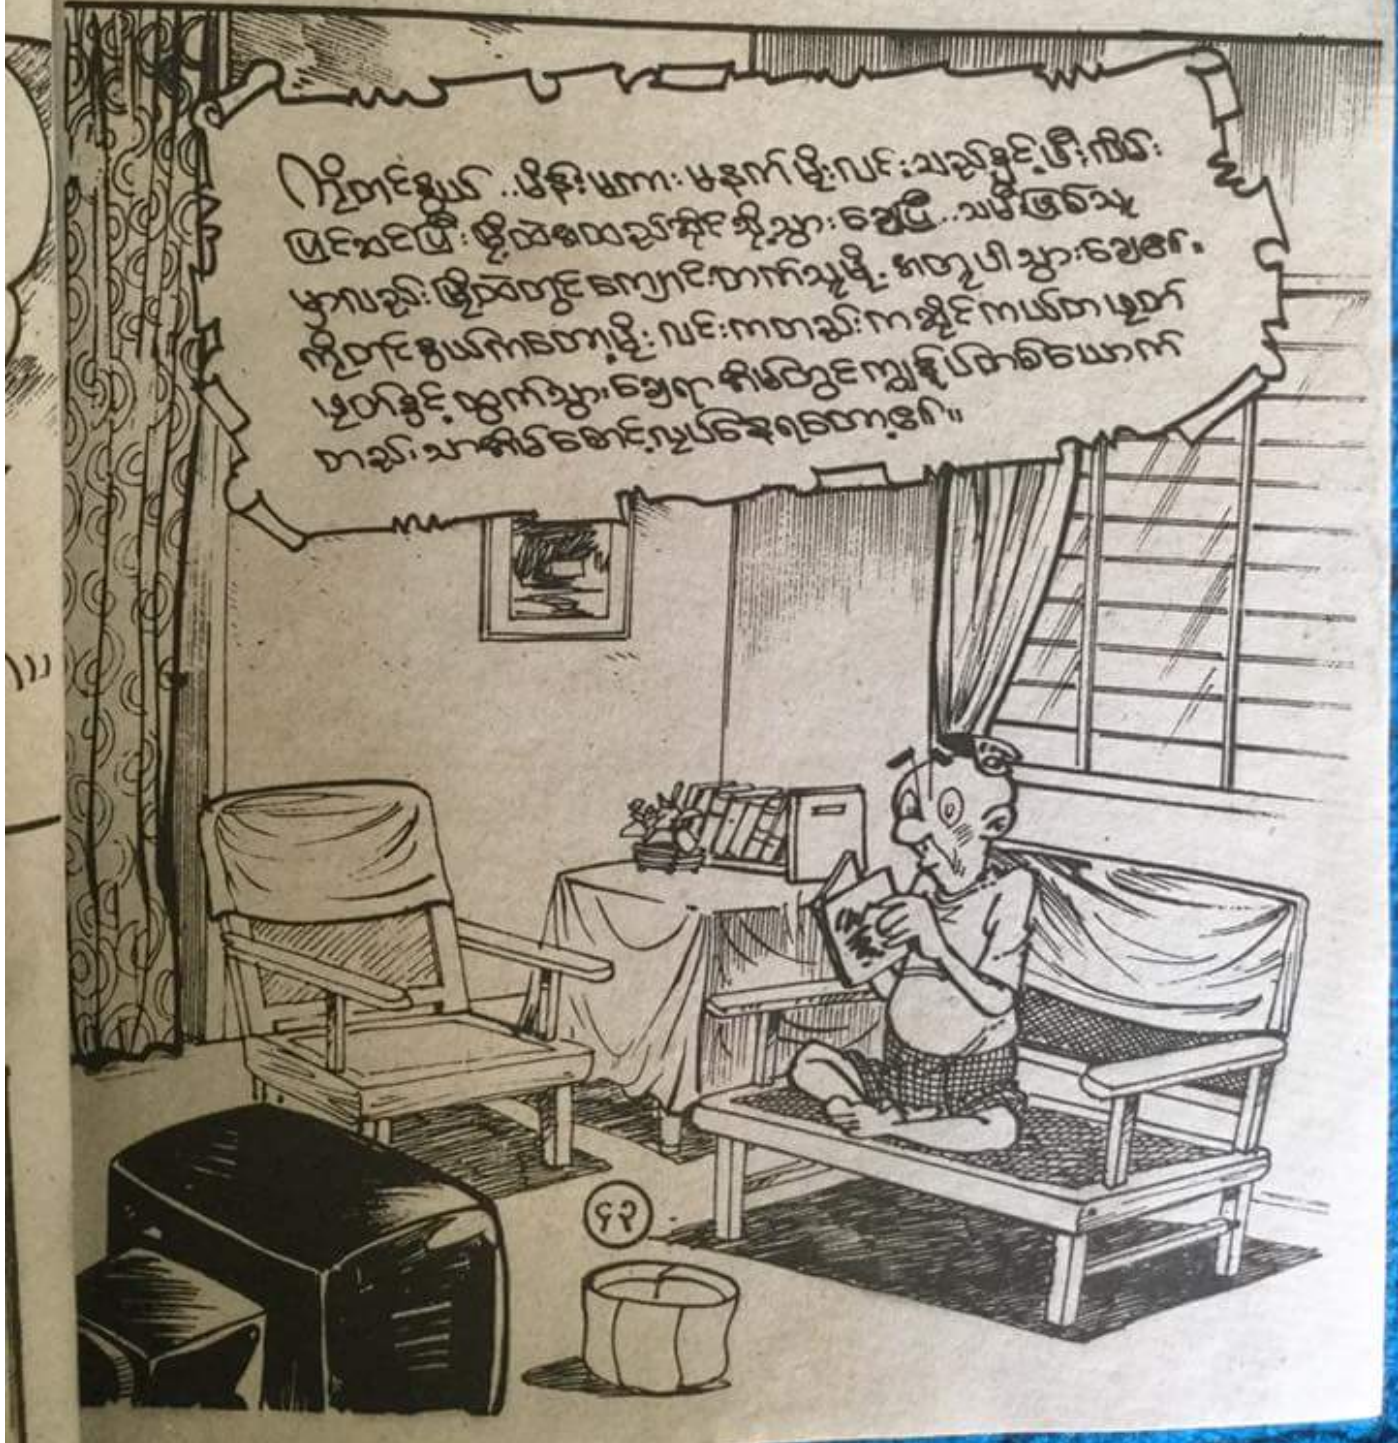 ကိုတင်နွယ်..မိန်းမကား မနက်မိုးလင်းသည်နှင့်ဖီးလိမ်း
ပြင်ဆင်ပြီးမြို့ထဲစထည်ဆိုင်သို့သွားချေပြီ..သမီးဖြစ်သူ
မှာလည်းမြို့ထဲတွင်ကျောင်းတက်သူမို့ အတူပါသွားချေ၏။
ကိုတင်နွယ်ကတော့မိုးလင်းကတည်းကဆိုင်ကယ်တဖုတ်
ဖုတ်နှင့်ထွက်သွားချေရာ အိမ်တွင်ကျွန်ုပ်တစ်ယောက်
တည်းသာအိမ်စောင့်လုပ်နေရတော့၏။
၄၃